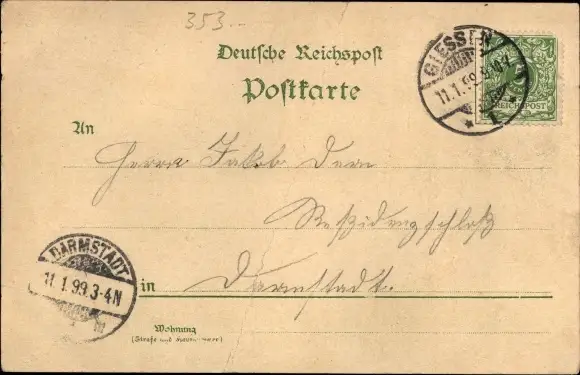 353.-
Deutsche Reichspost
Postkarte
GIESSEN
11.1.99. 9-10V
1.
REICHSPOST
An
Herrn Jakob Dern
Residenzschloß
DARMSTADT
11.1.99.3-4N
in Darmstadt.
Wohnung
(Straße und Hausnummer)